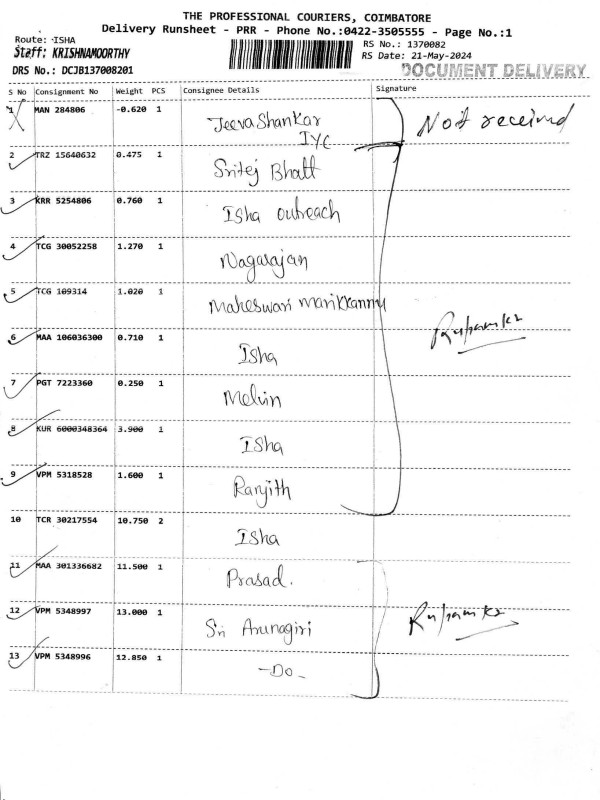 THE PROFESSIONAL COURIERS, COIMBATORE
Delivery Runsheet - PRR - Phone No.:0422-3505555 - Page No.:1
Route: ISHA
RS No.: 1370082
Staff: KRISHNAMOORTHY
RS Date: 21-May-2024
DRS No.: DCJB137008201
DOCUMENT DELIVERY
S No Consignment No Weight PCS Consignee Details Signature
1 MAN 284806 -0.620 1 JeevaShankar IYC Not received
2 TRZ 15640632 0.475 1 Sritej Bhatt
3 KRR 5254806 0.760 1 Isha outreach
4 TCG 30052258 1.270 1 Nagarajan
5 TCG 109314 1.020 1 Maheswari Marikkannu
6 MAA 106036300 0.710 1 Isha
7 PGT 7223360 0.250 1 Melvin
8 KUR 6000348364 3.900 1 Isha
9 VPM 5318528 1.600 1 Ranjith
10 TCR 30217554 10.750 2 Isha
11 MAA 301336682 11.500 1 Prasad.
12 VPM 5348997 13.000 1 Sri Arunagiri
13 VPM 5348996 12.850 1 -Do-